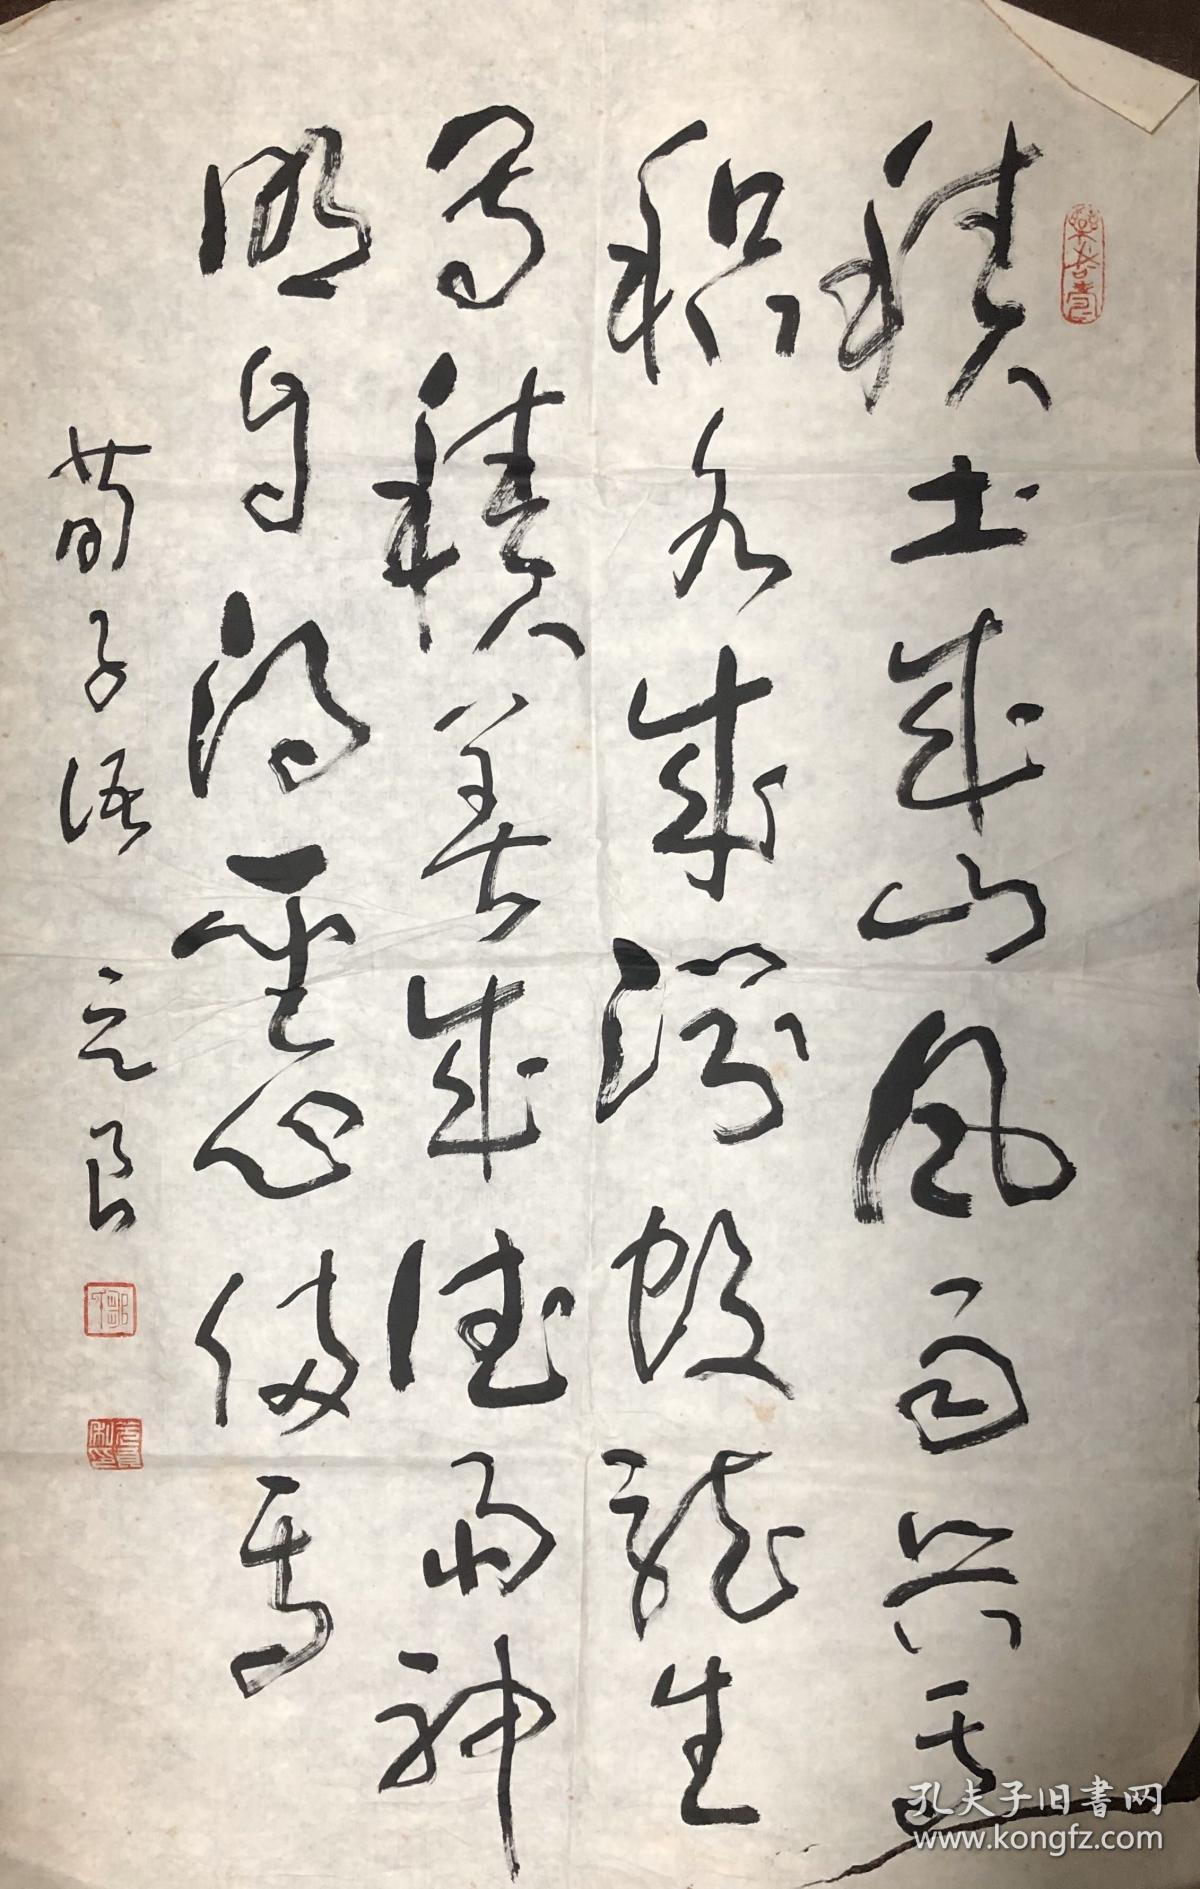 積土成山风雨兴焉
积水成渊蛟龙生
焉積善成德而神
明自得圣心备焉
荀子语 元良
孔夫子旧書网
www.kongfz.com